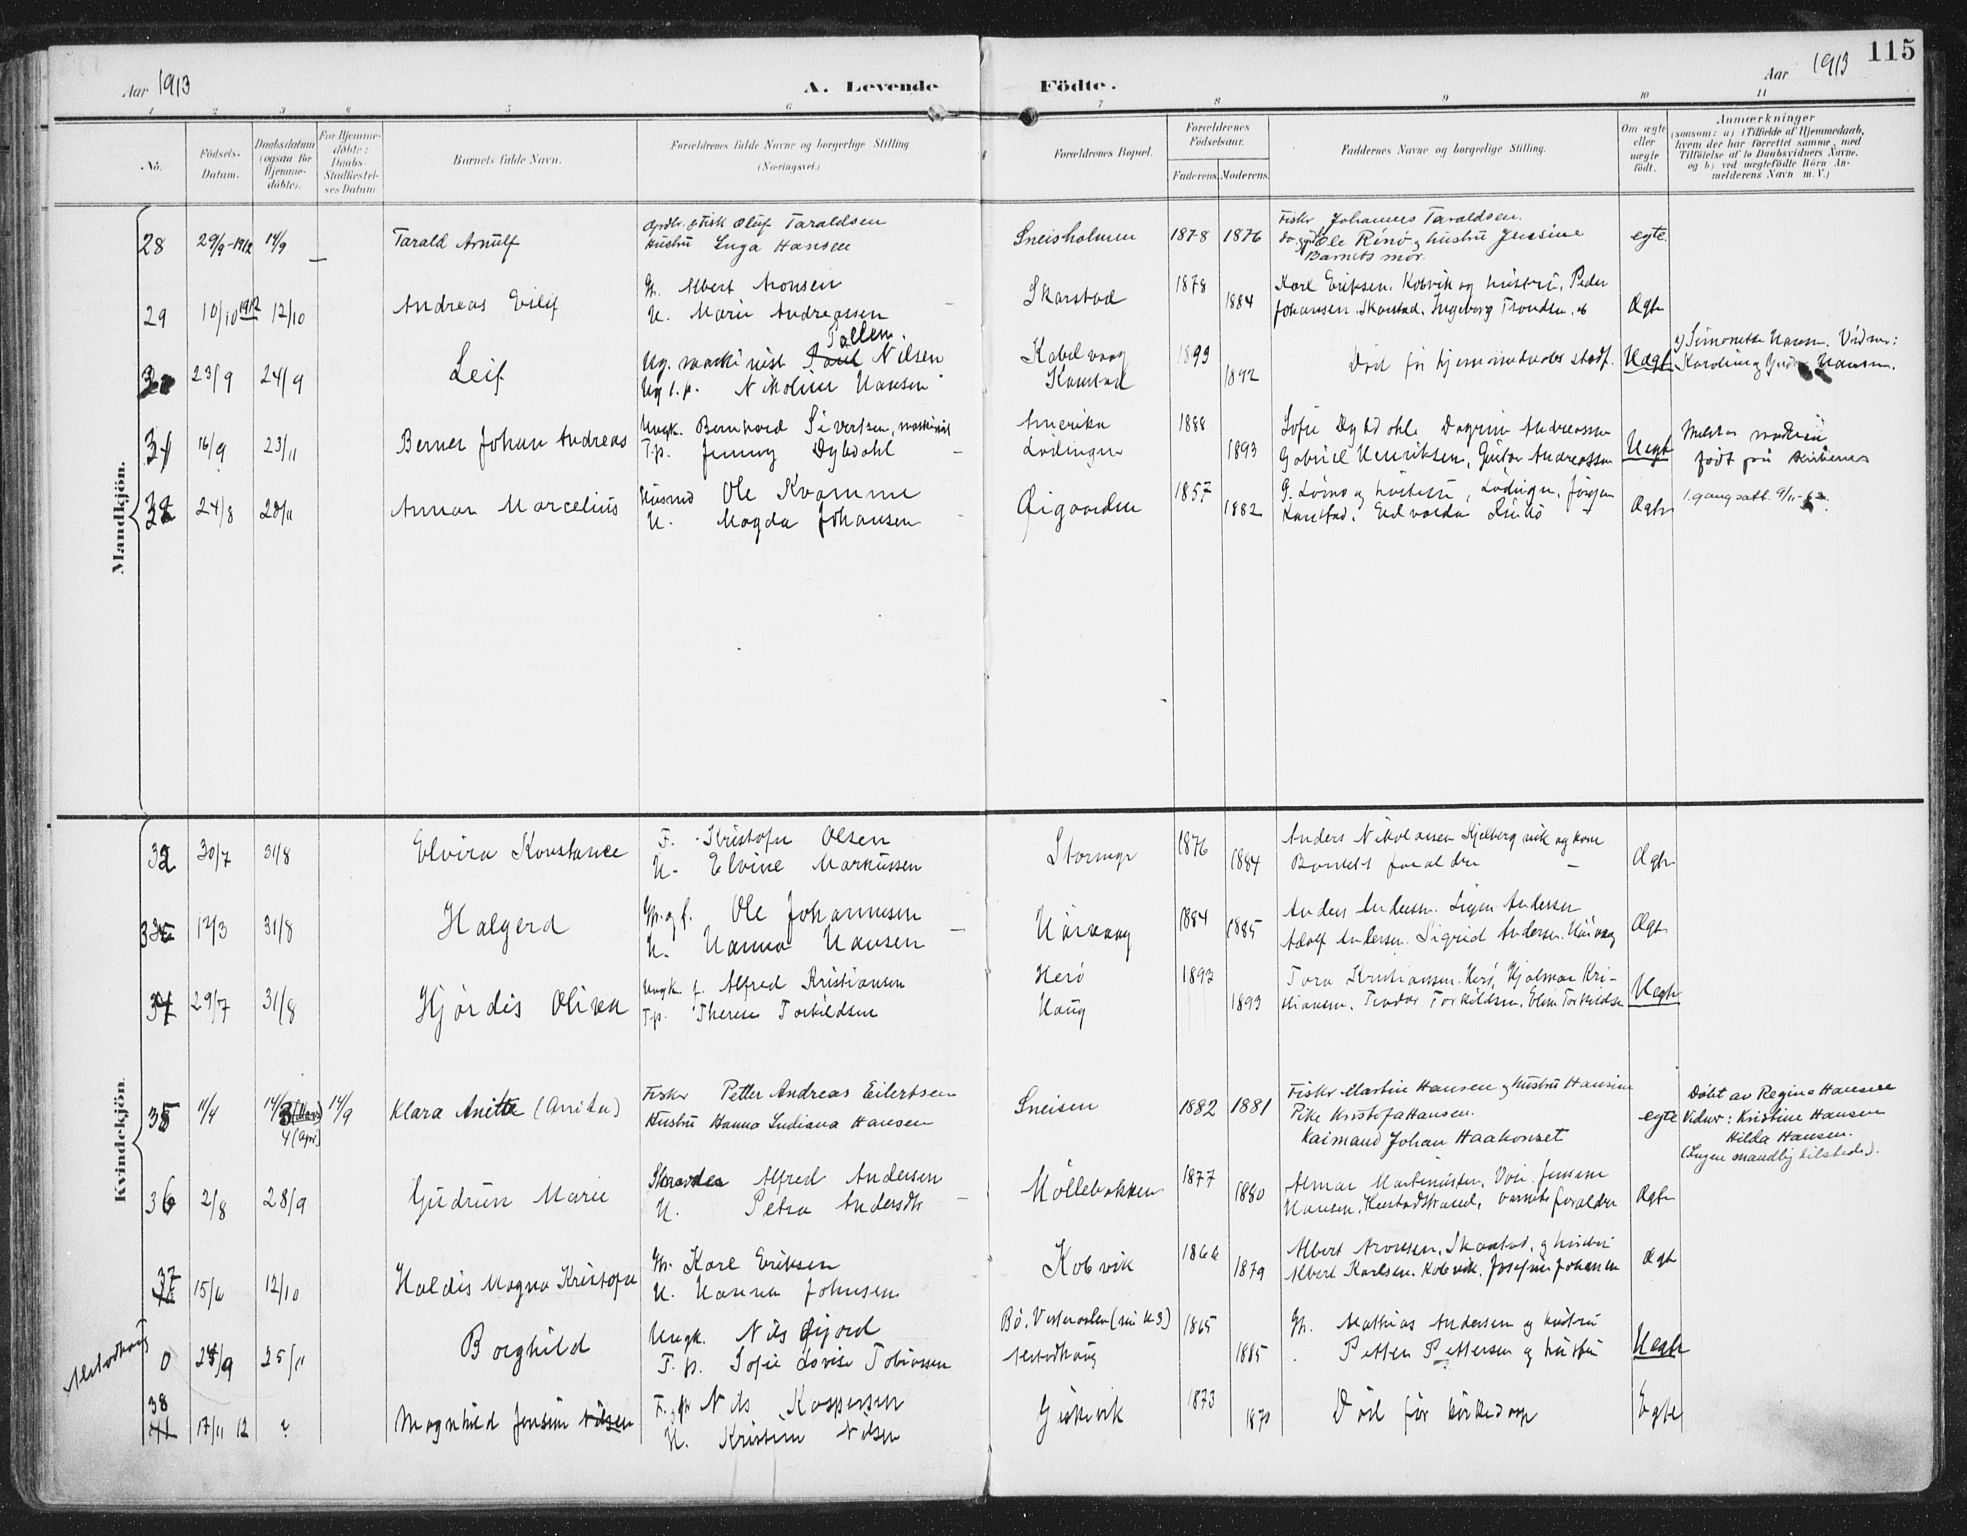 Aar 1913
A. Levende
Födte.
Aar 1913
115
1 2 3 4 5 6 7 8 9 10 11
No.
Födsels-Datum.
Daabsdatum (ogsaa för Hjemme-döbte).
For Hjemme-döbte: Daabs-Stadfæstel-ses Datum.
Barnets fulde Navn.
Forældrenes fulde Navne og borgerlige Stilling. (Næringsvei.)
Forældrenes Bopæl.
Forældrenes Födselsaar.
Faderens. Moderens.
Faddernes Navne og borgerlige Stilling.
Om ægte eller uægte födt.
Anmærkninger
(saasom: a) i Tilfælde af Hjemmedaab,
hvem der har forrettet samme, med
Tilföielse af to Daabsvidners Navne,
og b) ved uægtefödte Börn An-
melderens Navn m. V.)
Mandkjön.
28 29/9-1912 14/9 Tarald Arnulf
fisk Oluf Taraldsen
Hustru Inga Hansen
Sneisholmen 1878 1876
Fisker Johannes Taraldsen.
Ole Rinø og hustru Jensine
Barnets mor.
egte.
29 10/10 1912 12/10 Andreas Eilif
Albert Aronsen
H. Marie Andreassen
Skarstad 1878 1884
Karl Eriksen, Kobvik og hustru, Peder
Johansen, Skarstad, Ingeborg Trondsen
Ægte
30 23/9 24/9 Leif
Ug. maskinist Paul Nilsen
Nikoline Hansen
Kabelvaag
Kanstad
1893 1892
Död för hjemmedaabs stadf.
Uægte
Simonette Hansen. Vidner:
Karoline og Hansen.
31 16/9 23/11 Berner Johan Andreas
Ungk. Bernhard Sivertsen, maskinist
T.p. Jenny Dybdahl
Amerika
Lödingen
1888 1893
Sofie Dybdahl, Dagrun Andreassen
Gabriel Henriksen, Gustav Andreassen
Uegte
födt paa
32 24/8 20/11 Annar Marcelius
Husmd Ole Kvamme
H. Magda Johansen
Øigaarden 1857 1882
hustru, Lödingen, Jörgen
Kanstad, Edvarda Rinö
Ægte
1. gang satt. 9/11-62.
Kvindekjön.
32 30/7 31/8 Elvira Konstance
F. Kristofer Olsen
H. Elvine Markussen
Stormyr 1876 1884
Anders Nikolaisen Kjelbergvik og kone
Barnets foraldre
Ægte
33 12/3 31/8 Halgerd
Ole Johannesen
H. Hanna Hansen
Uörvaag 1884 1885
Anders Andersen. Signe Andersen
Adolf Andersen. Sigrid Andersen.
Ægte
34 29/7 31/8 Hjördis Oliva
Ungk. f. Alfred Kristiansen
T.p. Therese Torkildsen
Herö
Haug
1893 1893
Tora Kristiansen. Herö, Hjalmar Kri-
stiansen, Teodor Torkildsen, Eline Torkildsen
Uegte
35 11/4 14/9 Klara Anitte (Anita)
Fisker Petter Andreas Eilertsen
Hustru Hanna Indiana Hansen
Sneisen 1882 1881
Fisker Martin Hansen og hustru Hansine
Pike Kristofa Hansen.
Kaimand Johan Haakonset
egte
Döbt av Regine Hansen
Vidner: Kristine Hansen
Hilda Hansen.
(Ingen mandlig tilstede).
36 2/8 28/9 Gudrun Marie
Skrædder Alfred Andersen
H. Petra Andersdtr
Möllebakken 1877 1880
Hansen, Kanstadstrand, barnets foraldre
Ægte
37 15/6 12/10 Haldis Magna Kristofa
Karl Eriksen
H. Hanna Johnsen
Kobvik 1866 1879
Albert Aronsen, Skarstad, og hustru
Albert Karlsen, Kobvik, Josefine Johansen
Ægte
Alstadhaug
0 28/9 25/11 Borghild
Ungk. Nils Gjord
T.p. Sofie Lovise Tobiassen
Bö, Vesteraalen
Alstadhaug
1865 1885
Mathias Andersen og hustru
Petter Pettersen og hustru
Uegte
38 17/11 12 ? Magnhild Jensine Nilsen
Nils Kaspersen
H. Kristine Nilsen
Giskevik 1873 1870
Död för kirkedaap
Egte